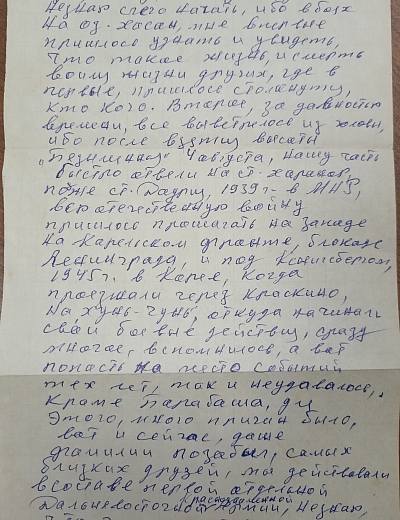 Незнаю с чего начать, ибо в боях
на оз. Хасан, мне впервые
пришлось узнать и увидеть,
что такое жизнь, и смерть
воины жизни других, где в
первые, пришлось столкнутц,
кто кого. Второе, за давностью
времени, все выветрелось из головы,
ибо после взятия высоты
"Безимянноу" 4 августа, нашу часть
быстро отвели на ст-
позже ст- 1939 г- в МНР,
всю отечественную войну
пришлось прошагать на западе
на Карельском фронте, блокаде
Ленинграда, и под Кенигсбергом,
1945 г. в Корее, когда
проезжали через Краскино,
на Хунь-Чунь, откуда начинали
свои боевые действия, сразу
многое, вспомнилось, а вот
попасть на место событий
тех лет, так и неудавалось,
кроме Барабаша, да
этого, много причин было,
вот и сейчас, даже
фамилии позабыл, самых
близких друзей, мы действовали
в составе первой отдельной
Краснознаменной
Дальневосточной Армии, незнаю,